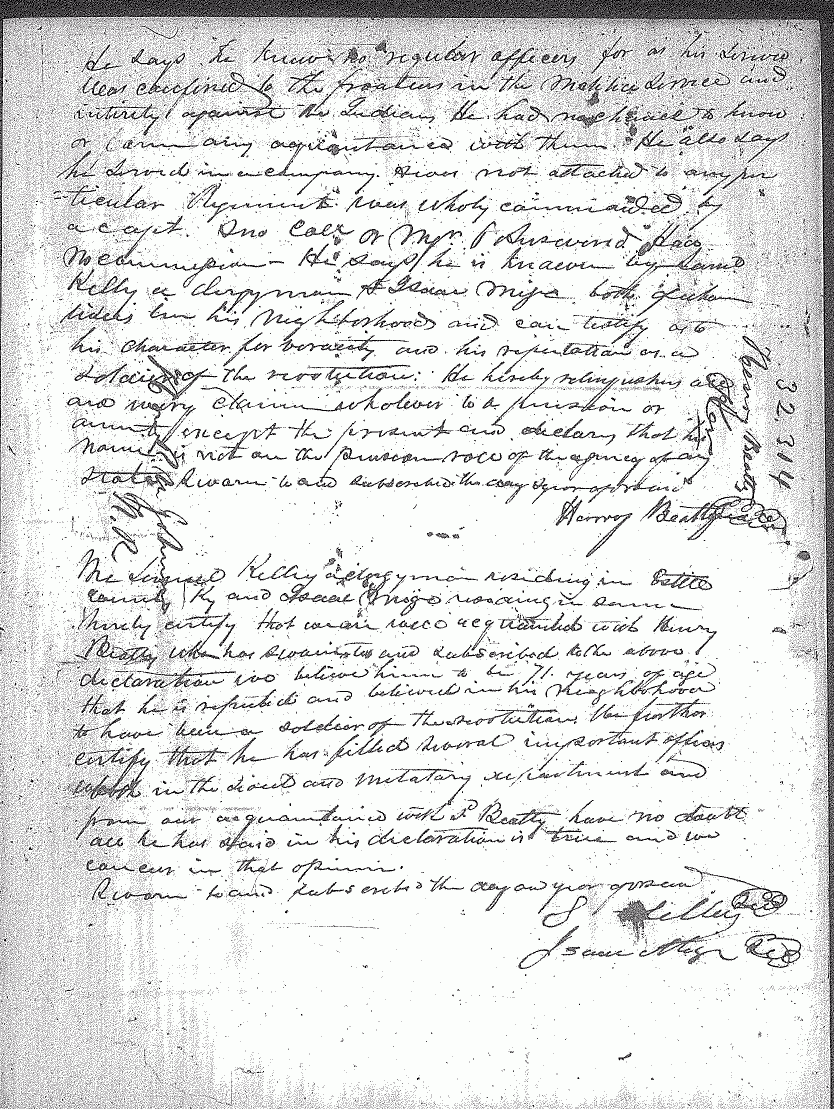 He says he knows no regular officers for as his service
was confined to the frontiers in the malitice service and
entirely against the Indians He had no chance to know
or form any aquantance with them. He also says
he served in a company & was not attached to any per
=ticular Regiment & was wholy commanded by
a capt.
No commission - He says he is known by Saml
Kelly a clergyman & Isaac both of whom
lives in his neighborhood and can testify as to
his character for veracity and his reputation as a
soldier of the revolution. He hereby relinquishes
and every claim whatever to a pension or
annuity except the present and declares that his
name is not on the pension role of the agency of any
state Sworn to and subscribed the day & year aforesaid
Henry Beatty
32.314
Henry Beatty
We Samuel Kelley a clergyman residing in Estill
county Ky and Isaac residing in same
hereby certify that we are well acquainted with Henry
Beatty who has sworn to and subscribed to the above
declaration we believe him to be 71 years of age
that he is reputed and believed in his neighborhood
to have been a soldier of the revolution. We further
certify that he has filled several important offices
both in the and Metatary department and
from our acquaintance with Sd Beatty have no doubt
all he has said in his declaration is true and we
concur in that opinion.
Sworn to and subscribed the day and year aforesaid
S Kelley
Isaac